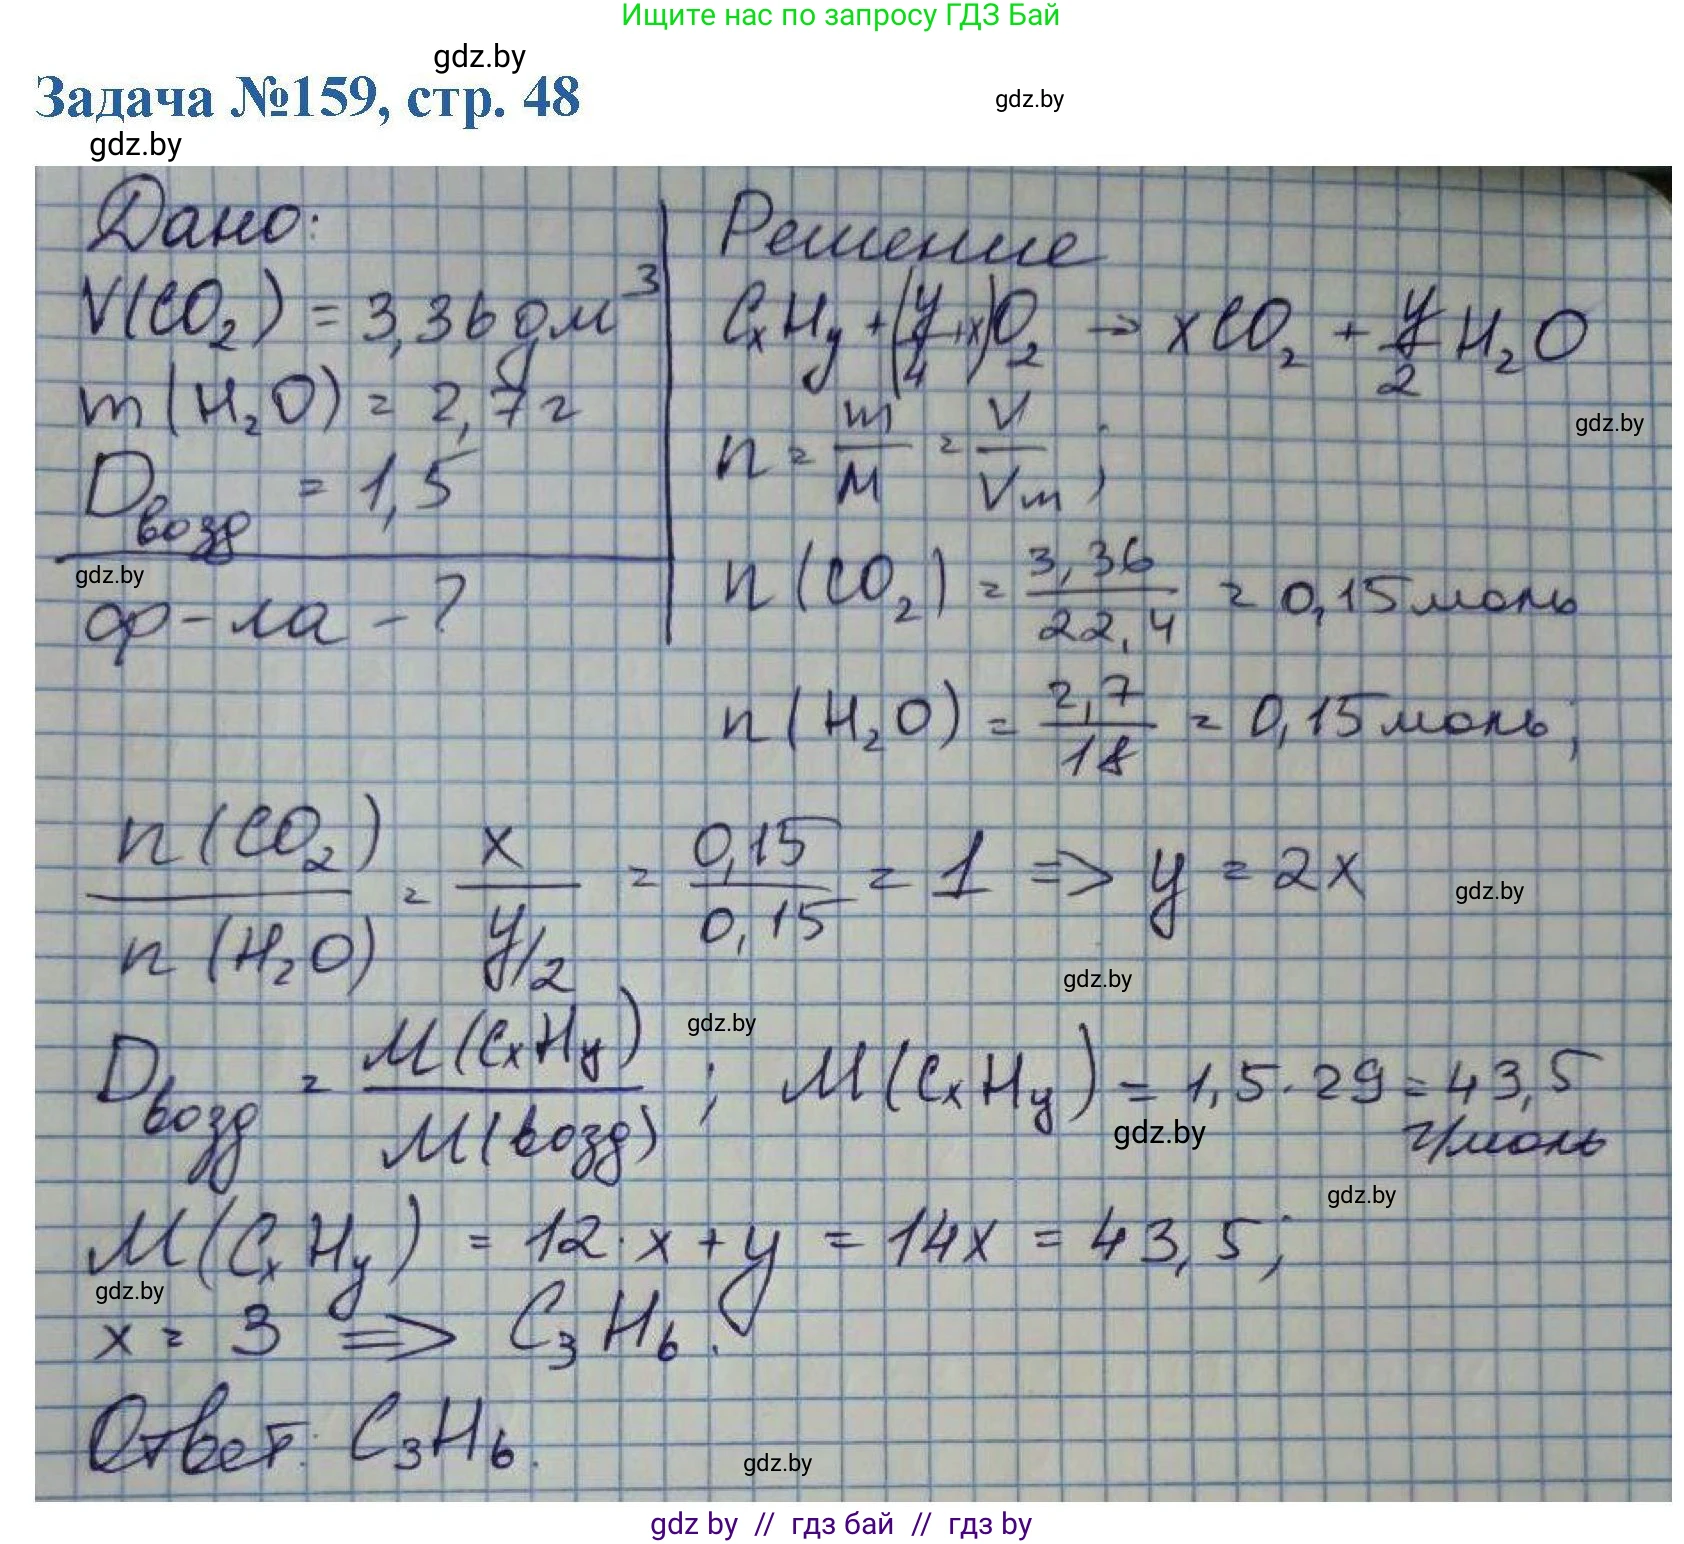 Ищите нас по запросу ГДЗ Бай
gdz.by
Задача №159, стр. 48
gdz.by
gdz.by
Дано:
V(CO₂) = 3,36 дм³
m(H₂O) = 2,7 г
Dвозд = 1,5
gdz.by
ф-ла - ?
Решение
CₓHᵧ + (y/4 + x)O₂ → xCO₂ + y/2 H₂O
gdz.by
n = m/M = V/Vm ;
n(CO₂) = 3,36/22,4 = 0,15 моль
n(H₂O) = 2,7/18 = 0,15 моль;
n(CO₂)/n(H₂O) = x/(y/2) = 0,15/0,15 = 1 => y = 2x
gdz.by
gdz.by
gdz.by
Dвозд = M(CₓHᵧ)/M(возд) ; M(CₓHᵧ) = 1,5 · 29 = 43,5 г/моль
gdz.by
gdz.by
M(CₓHᵧ) = 12 · x + y = 14x = 43,5;
gdz.by
x = 3 => C₃H₆.
Ответ: C₃H₆.
gdz.by
gdz by // гдз бай // гдз by